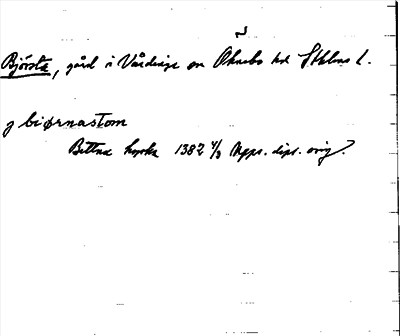 Bjösta, gård i Vårdinge sn Öknebo hd Sthlms l.
j biørnastom
Bettna kyrka 1382 4/3 Upps. dipl. orig.